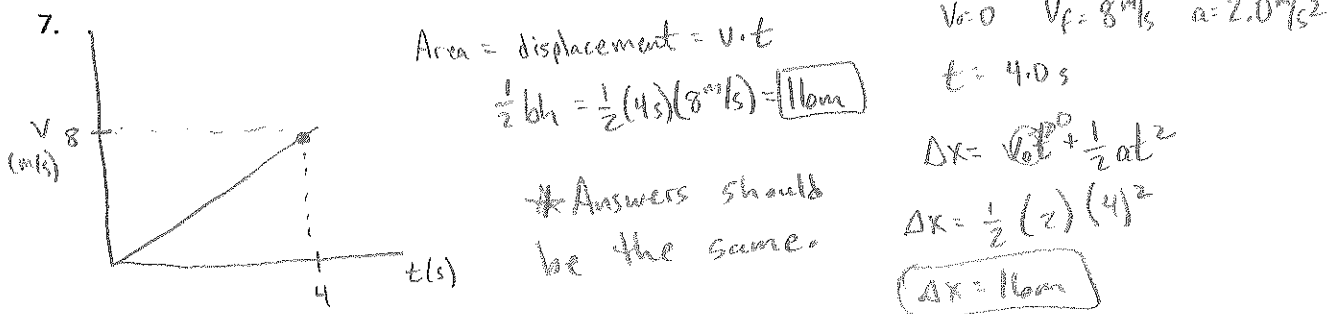 7.
V
(m/s)
8
4
t(s)
Area = displacement = v·t
½bh = ½(4s)(8 m/s) = 16m
* Answers should
be the same.
V₀=0 Vf= 8 m/s a= 2.0 m/s²
t= 4.0 s
Δx= V₀t⁰ + ½at²
Δx= ½(2)(4)²
Δx= 16m